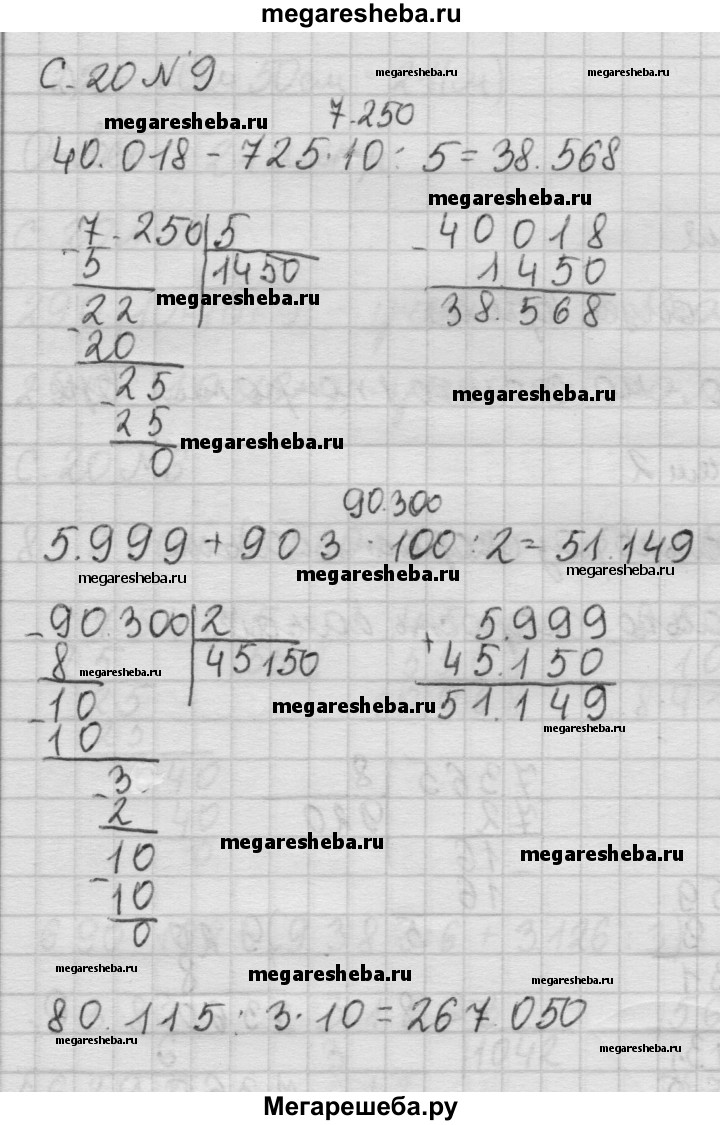 megaresheba.ru
С. 20 №9
megaresheba.ru
megaresheba.ru
7.250
40.018 - 725·10 : 5 = 38.568
megaresheba.ru
7.250 | 5
- 5 | 1450
megaresheba.ru
22
- 20
25
- 25
0
- 40018
1450
38.568
megaresheba.ru
megaresheba.ru
90.300
5.999 + 903 · 100 : 2 = 51.149
megaresheba.ru
megaresheba.ru
megaresheba.ru
- 90.300 | 2
8 | 45150
megaresheba.ru
10
- 10
3
- 2
10
- 10
0
5.999
+ 45.150
51.149
megaresheba.ru
megaresheba.ru
megaresheba.ru
megaresheba.ru
megaresheba.ru
megaresheba.ru
megaresheba.ru
80.115 : 3·10 = 267.050
megaresheba.ru
megaresheba.ru
Мегарешеба.ру